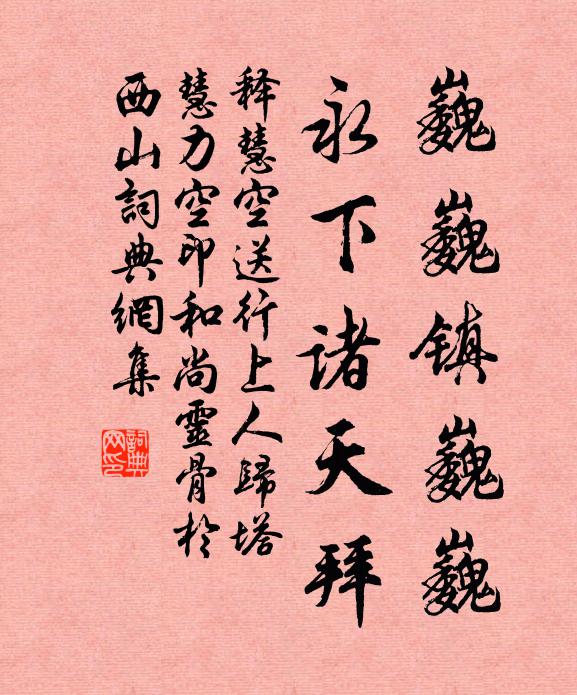 巍巍镇巍巍
永下诸天拜
释慧空送行上人歸塔
慧力空印和尚靈骨於
西山詞典網集
詞典网印